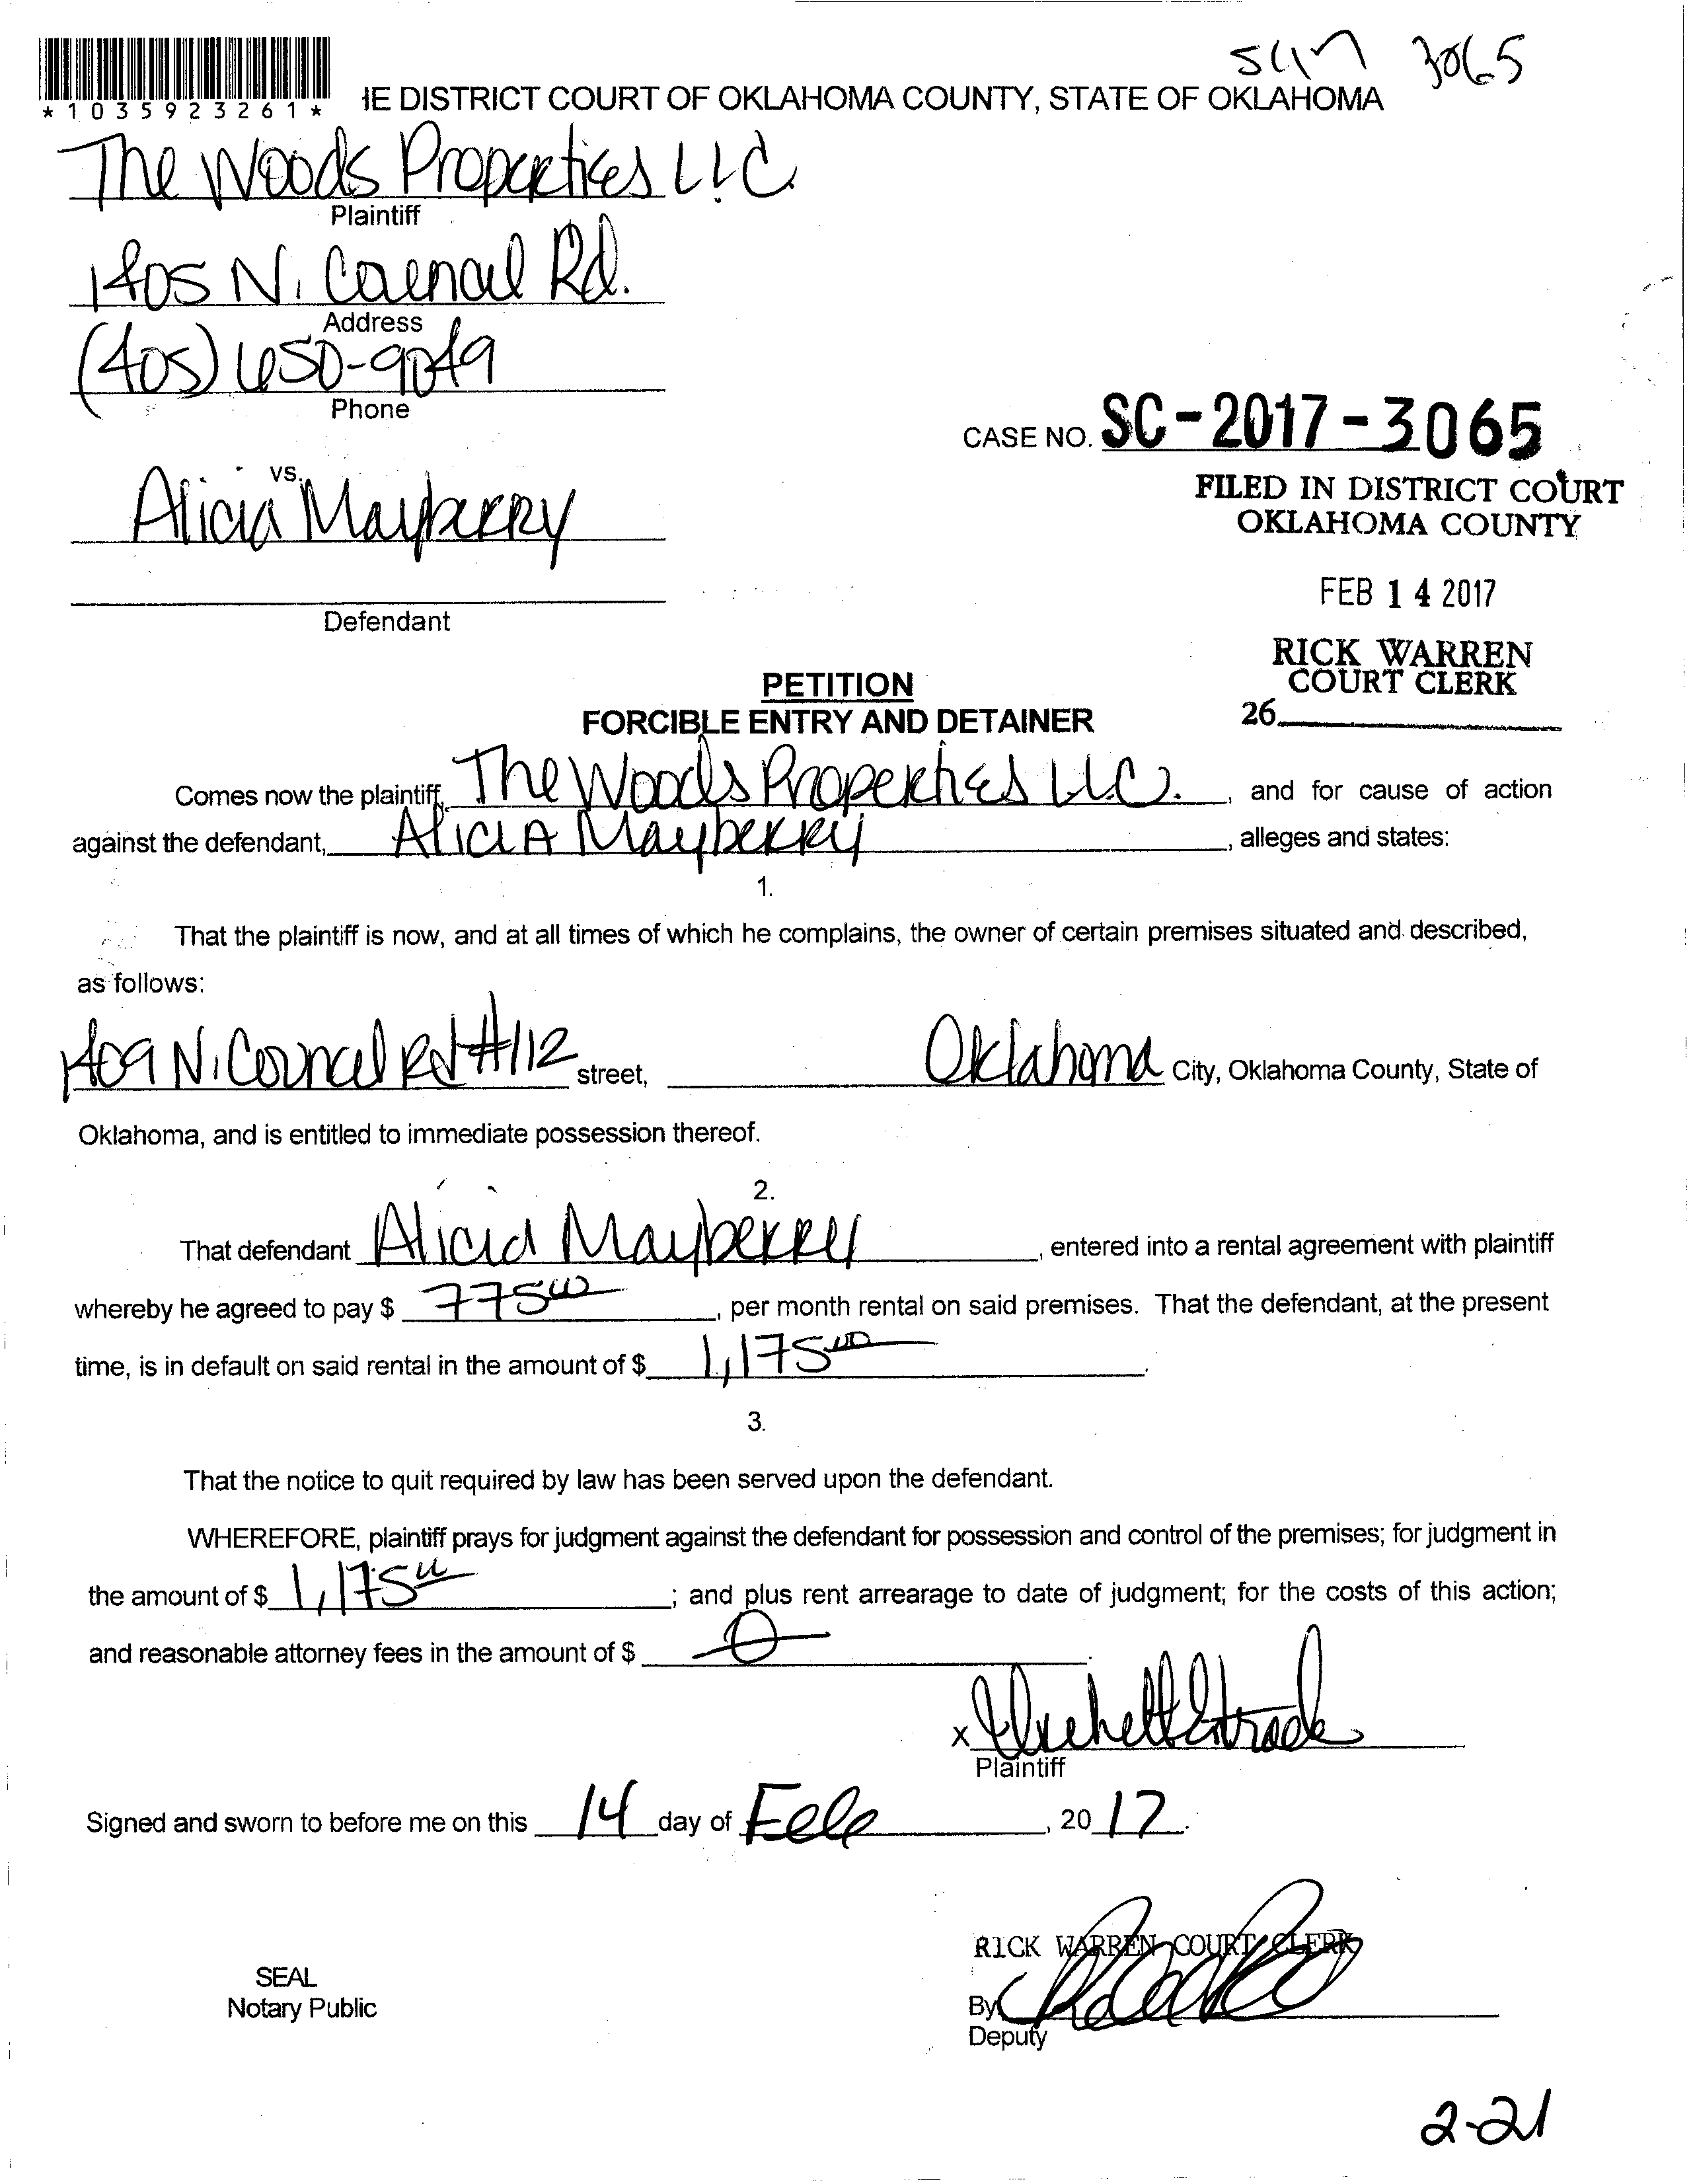 SC17 3065
*1035923261*
IE DISTRICT COURT OF OKLAHOMA COUNTY, STATE OF OKLAHOMA
The Woods Properties LLC
Plaintiff
1405 N. Council Rd.
Address
(405) 650-9049
Phone
CASE NO. SC-2017-3065
vs.
Alicia Mayberry
FILED IN DISTRICT COURT
OKLAHOMA COUNTY
FEB 14 2017
Defendant
RICK WARREN
COURT CLERK
26
PETITION
FORCIBLE ENTRY AND DETAINER
Comes now the plaintiff, The Woods Properties LLC. , and for cause of action
against the defendant, Alicia Mayberry , alleges and states:
1.
That the plaintiff is now, and at all times of which he complains, the owner of certain premises situated and described,
as follows:
1409 N. Council Rd #112 street, Oklahoma City, Oklahoma County, State of
Oklahoma, and is entitled to immediate possession thereof.
2.
That defendant Alicia Mayberry , entered into a rental agreement with plaintiff
whereby he agreed to pay $ 775 00 , per month rental on said premises. That the defendant, at the present
time, is in default on said rental in the amount of $ 1,175 00 .
3.
That the notice to quit required by law has been served upon the defendant.
WHEREFORE, plaintiff prays for judgment against the defendant for possession and control of the premises; for judgment in
the amount of $ 1,175 00 ; and plus rent arrearage to date of judgment; for the costs of this action;
and reasonable attorney fees in the amount of $ 0 .
x
Plaintiff
Signed and sworn to before me on this 14 day of Feb , 20 17.
RICK WARREN COURT CLERK
SEAL
Notary Public
By
Deputy
2-21